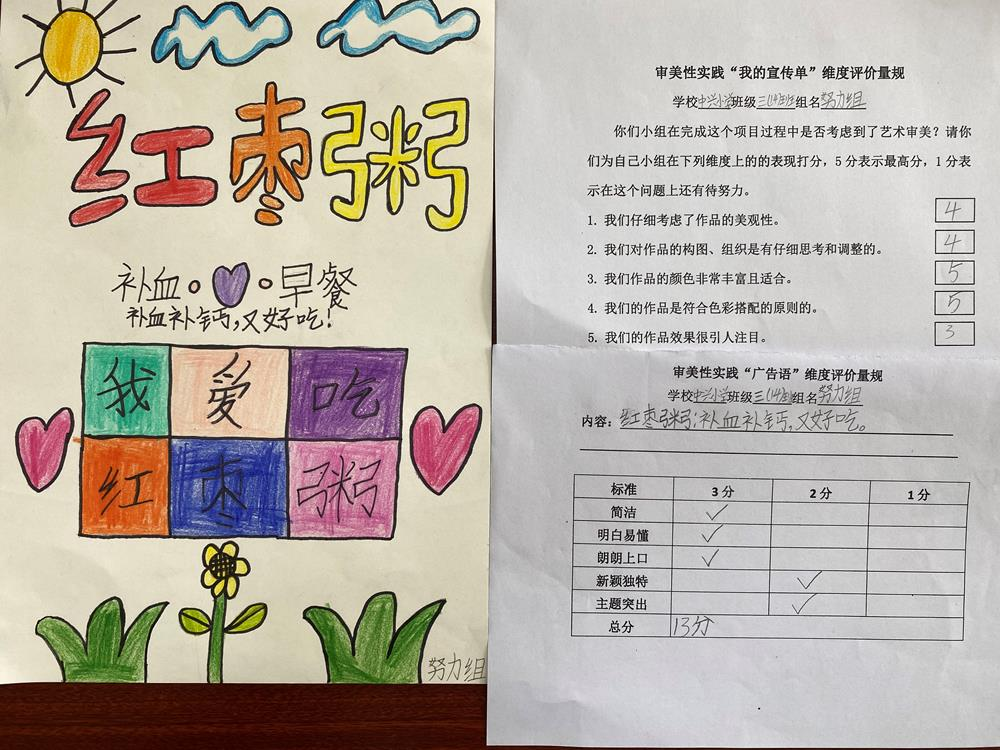 红枣粥
补血·早餐
补血补钙,又好吃!
我爱吃
红枣粥
努力组
审美性实践“我的宣传单”维度评价量规
学校中兴小学班级三(4)班组名努力组
你们小组在完成这个项目过程中是否考虑到了艺术审美?请你
们为自己小组在下列维度上的的表现打分,5分表示最高分,1分表
示在这个问题上还有待努力。
1. 我们仔细考虑了作品的美观性。 4
2. 我们对作品的构图、组织是有仔细思考和调整的。 4
3. 我们作品的颜色非常丰富且适合。 5
4. 我们的作品是符合色彩搭配的原则的。 5
5. 我们的作品效果很引人注目。 3
审美性实践“广告语”维度评价量规
学校中兴小学班级三(4)组名努力组
内容:红枣粥:补血补钙,又好吃。
标准 3分 2分 1分
简洁 ✓
明白易懂 ✓
朗朗上口 ✓
新颖独特 ✓
主题突出 ✓
总分 13分